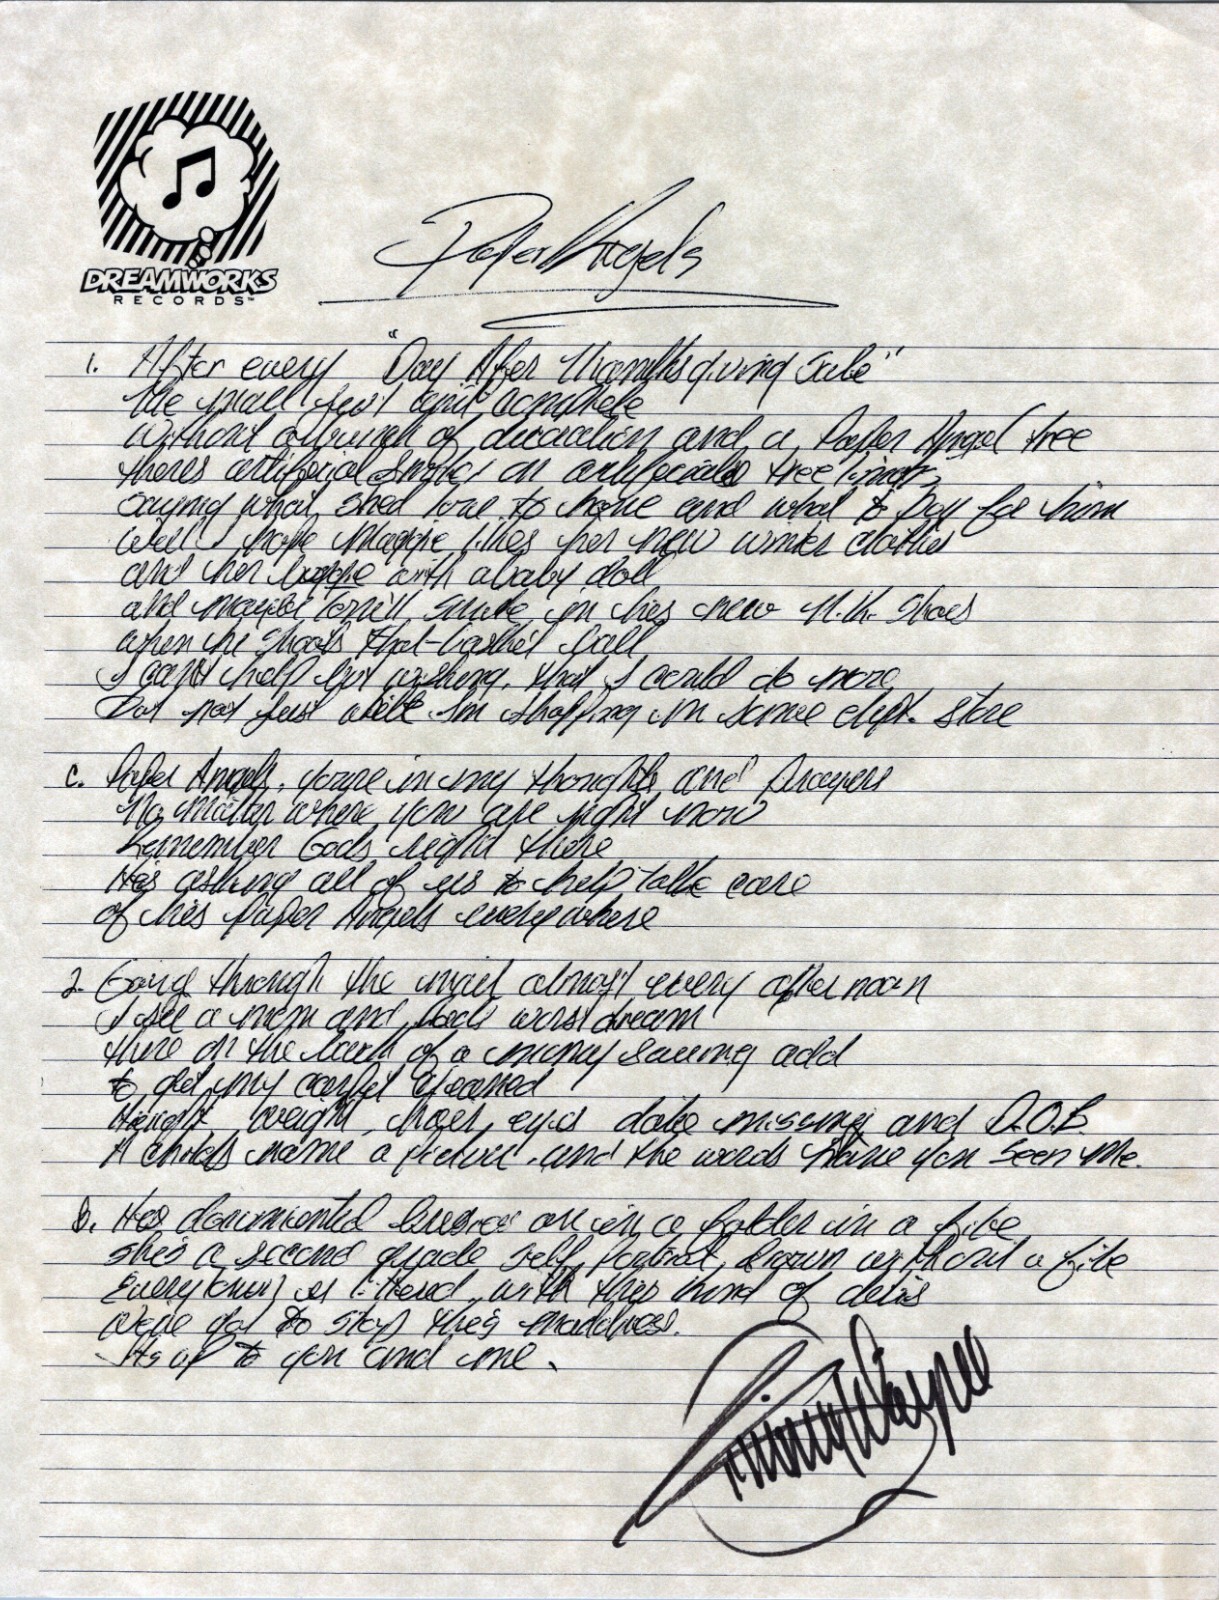 DREAMWORKS
RECORDS™
Paper Angels
1. After every "Day After Thanksgiving Sale"
the mall isn't quite complete
without a bunch of decoration and a Paper Angel tree
theres artificial on artificial tree limbs
saying what shed love to have and what to buy for him
well I hope Maggie likes her new winter clothes
and her with a baby doll
and maybe smile in his new shoes
when he shoots that basket ball
I cant help but wishing that I could do more
But not just while Im shopping in some dept. store
c. Paper Angels, youre in my thoughts and Prayers
No matter where you are right now
Remember Gods right there
Hes asking all of us to help take care
of his Paper Angels everywhere
2. Going through the mail almost every afternoon
I see a mom and dads worst dream
there on the back of a money saving add
to get my carpet cleaned
Height, weight, hair, eyes date missing and D.O.B.
A childs name a picture, and the words have you seen me.
b. Hes documented bruises on in a folder in a file
shes a second grade self portrait drawn without a
Every is littered with this kind of
We've got to stop this maddness.
Its up to you and me.
Jimmy Wayne